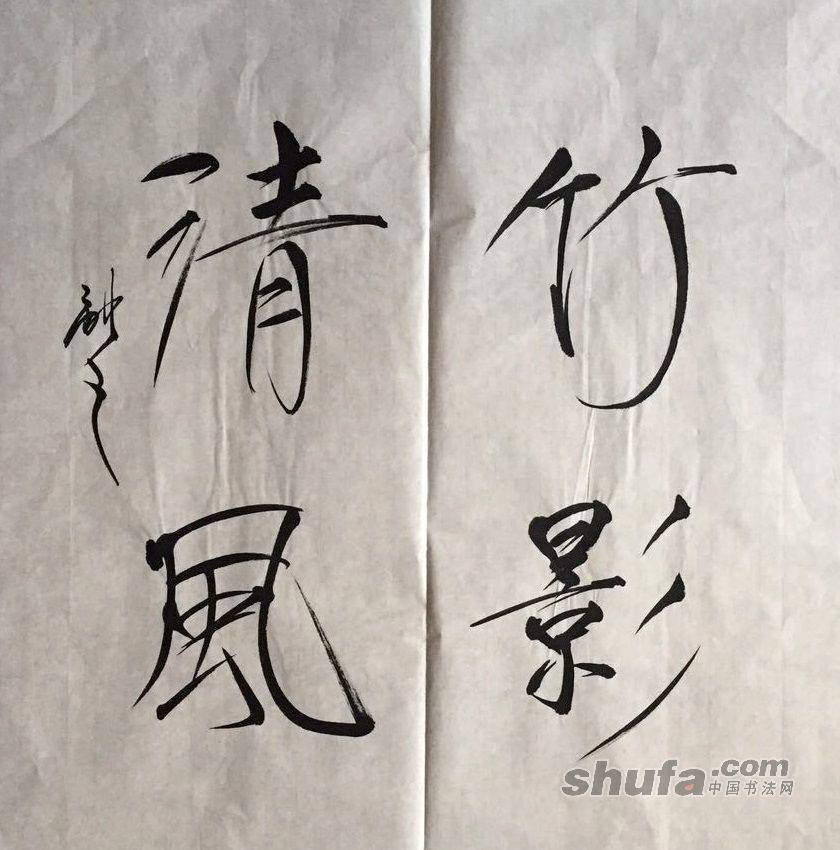 竹影
清風
shufa.com
中国书法网